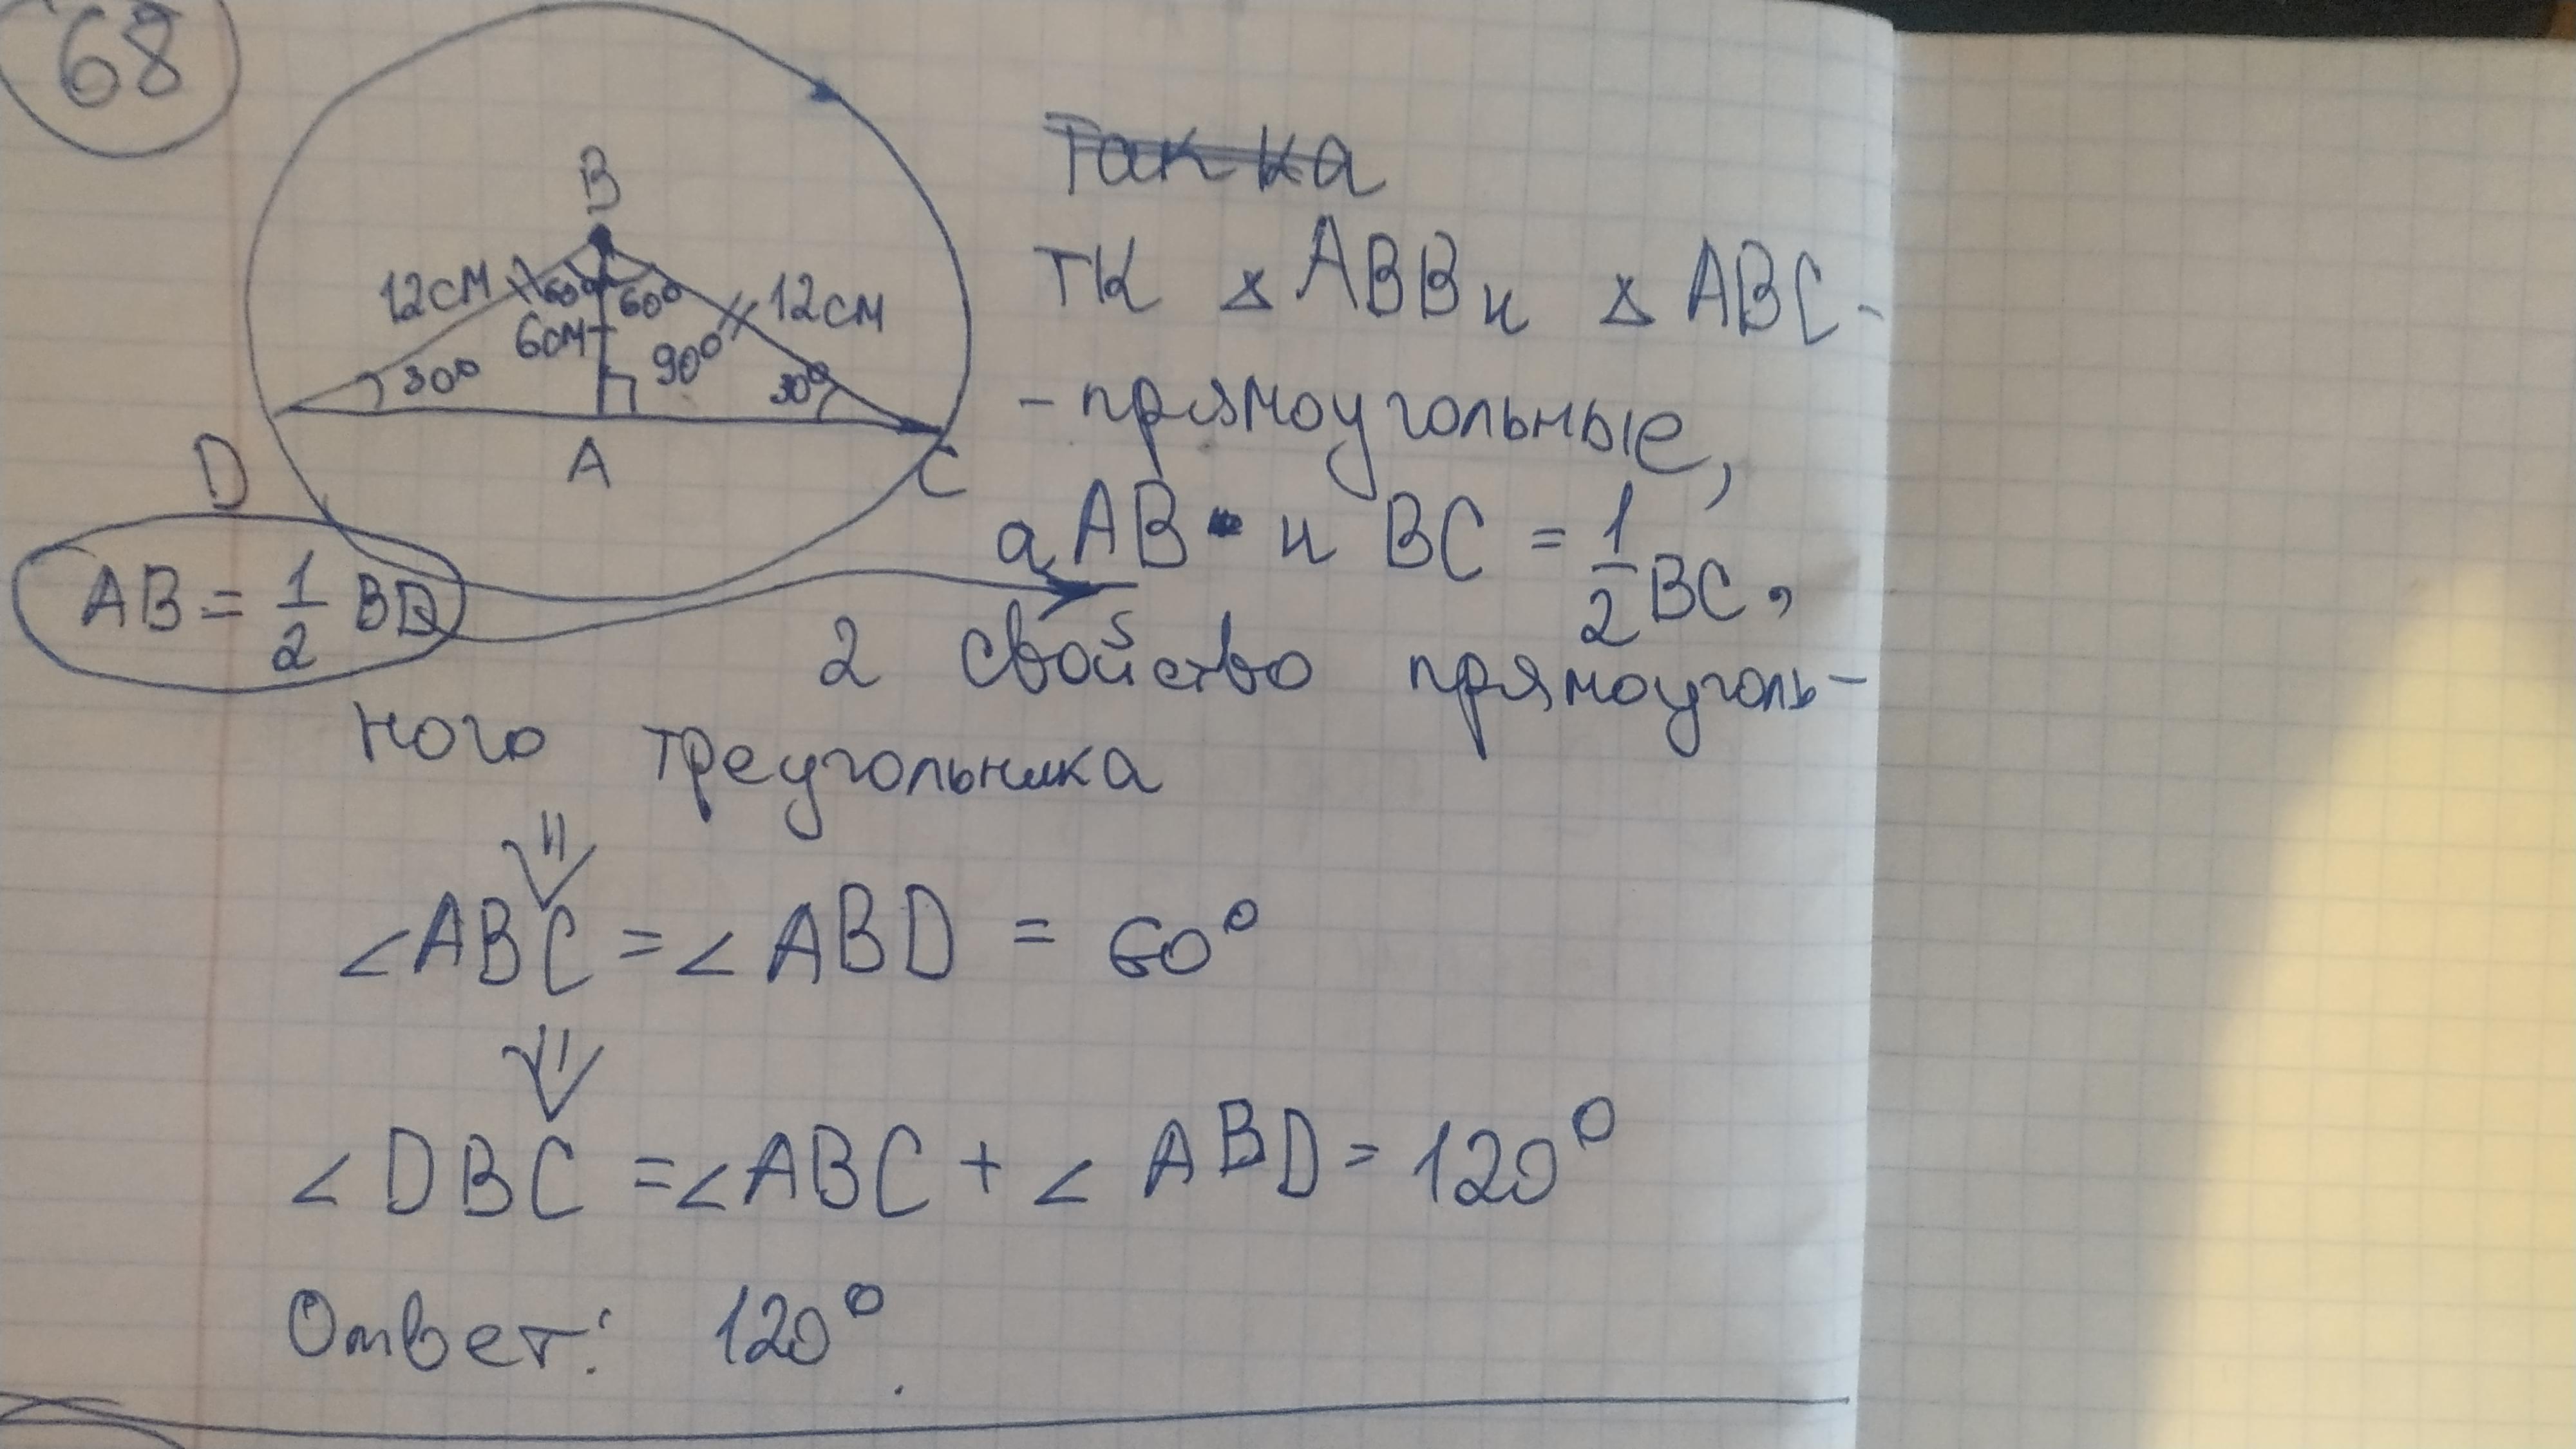 68
Так ка
B
12см 60° 60° 12см
6см 90°
30° 30°
D A C
тк △ ABB и △ ABC-
-прямоугольные,
а AB и BC = 1/2 BC,
AB = 1/2 BD
2 свойство прямоуголь-
ного треугольника
⇓
∠ABC = ∠ABD = 60°
⇓
∠DBC = ∠ABC + ∠ABD = 120°
Ответ: 120°.